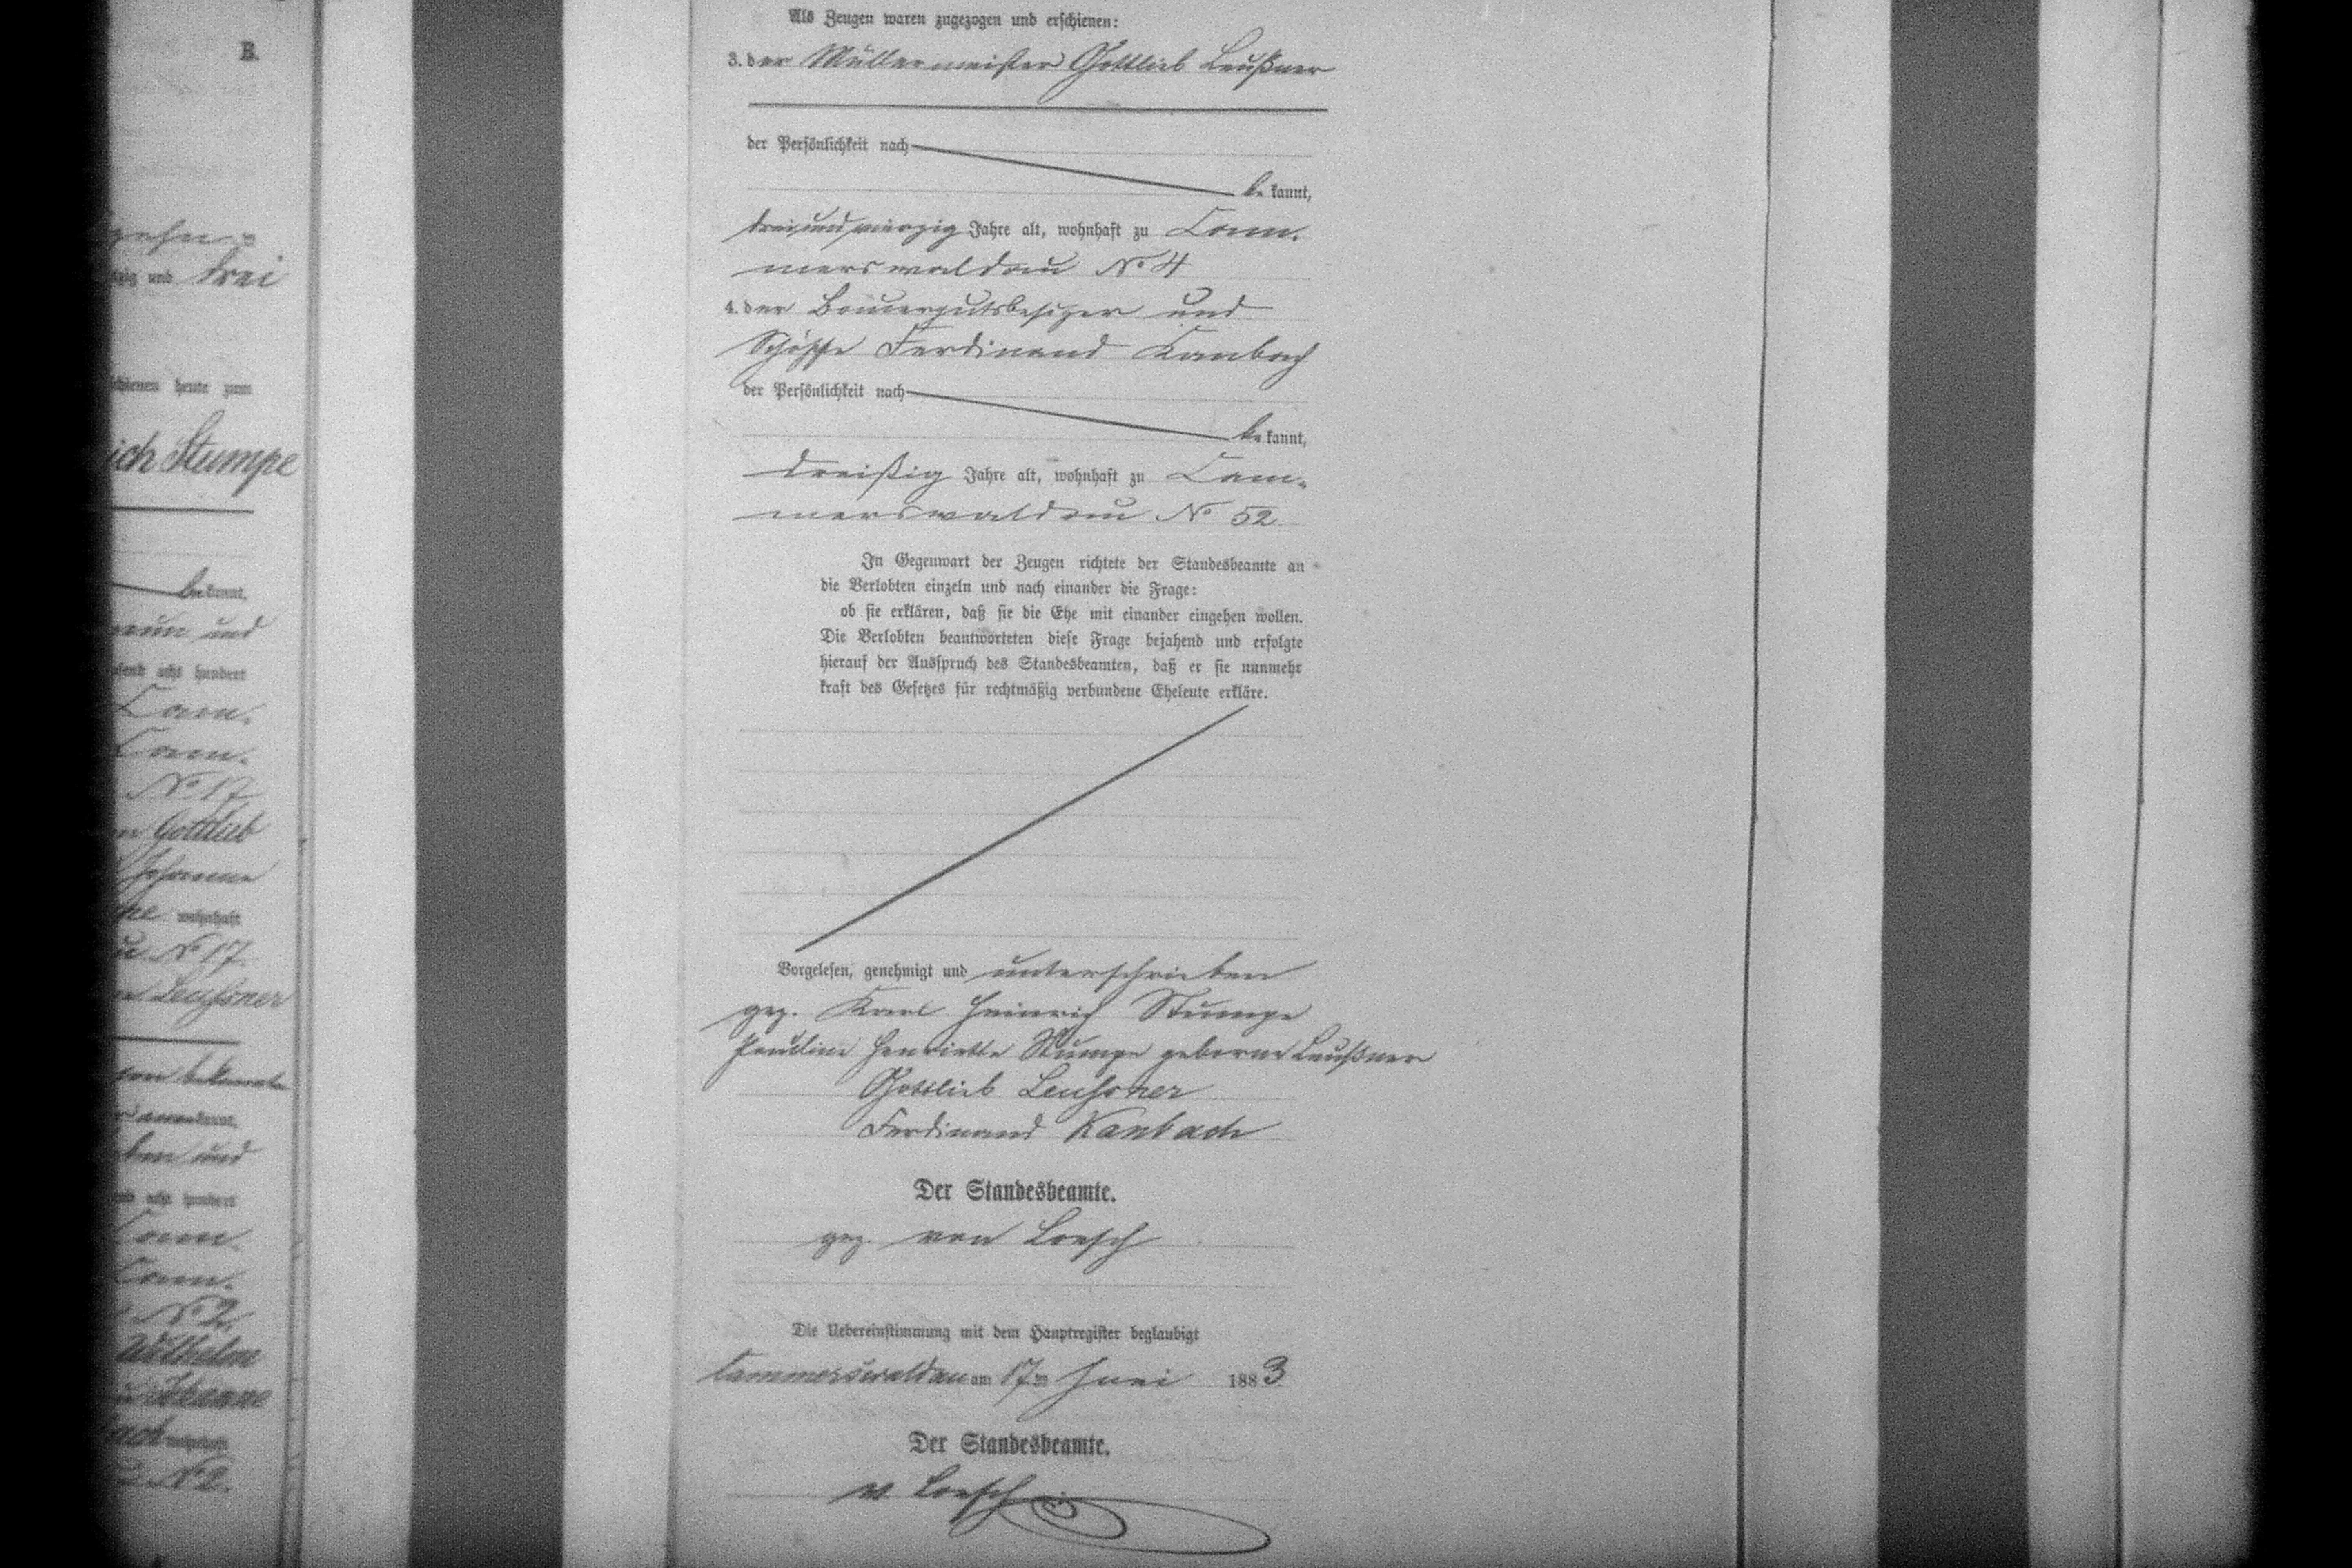 B.
zehn
zig und drei
schienen heute zum
ich Stumpe
bekannt,
neun und
usend acht hundert
Cam-
Cam-
No 17
Gottlieb
Johanne
wohnhaft
No 17
Leußner
bekannt
und
acht hundert
Cam-
Cam-
No 2
Wilhelm
Johanne
No 2.
Als Zeugen waren zugezogen und erschienen:
3. der Müllermeister Gottlieb Leußner
der Persönlichkeit nach
be kannt,
dreiundvierzig Jahre alt, wohnhaft zu Cam-
merswaldau No 4
4. der Bauergutsbesizer und
Schöffe Ferdinand Kanbach
der Persönlichkeit nach
be kannt,
dreißig Jahre alt, wohnhaft zu Cam-
merswaldau No 52
In Gegenwart der Zeugen richtete der Standesbeamte an
die Verlobten einzeln und nach einander die Frage:
ob sie erklären, daß sie die Ehe mit einander eingehen wollen.
Die Verlobten beantworteten diese Frage bejahend und erfolgte
hierauf der Ausspruch des Standesbeamten, daß er sie nunmehr
kraft des Gesetzes für rechtmäßig verbundene Eheleute erkläre.
Vorgelesen, genehmigt und unterschrieben
gez. Karl Heinrich Stumpe
Pauline Henriette Stumpe geborne Leußner
Gottlieb Leußner
Ferdinand Kanbach
Der Standesbeamte.
gez. von Loesch
Die Uebereinstimmung mit dem Hauptregister beglaubigt
Cammerswaldau am 17ten Juni 1883
Der Standesbeamte.
v. Loesch